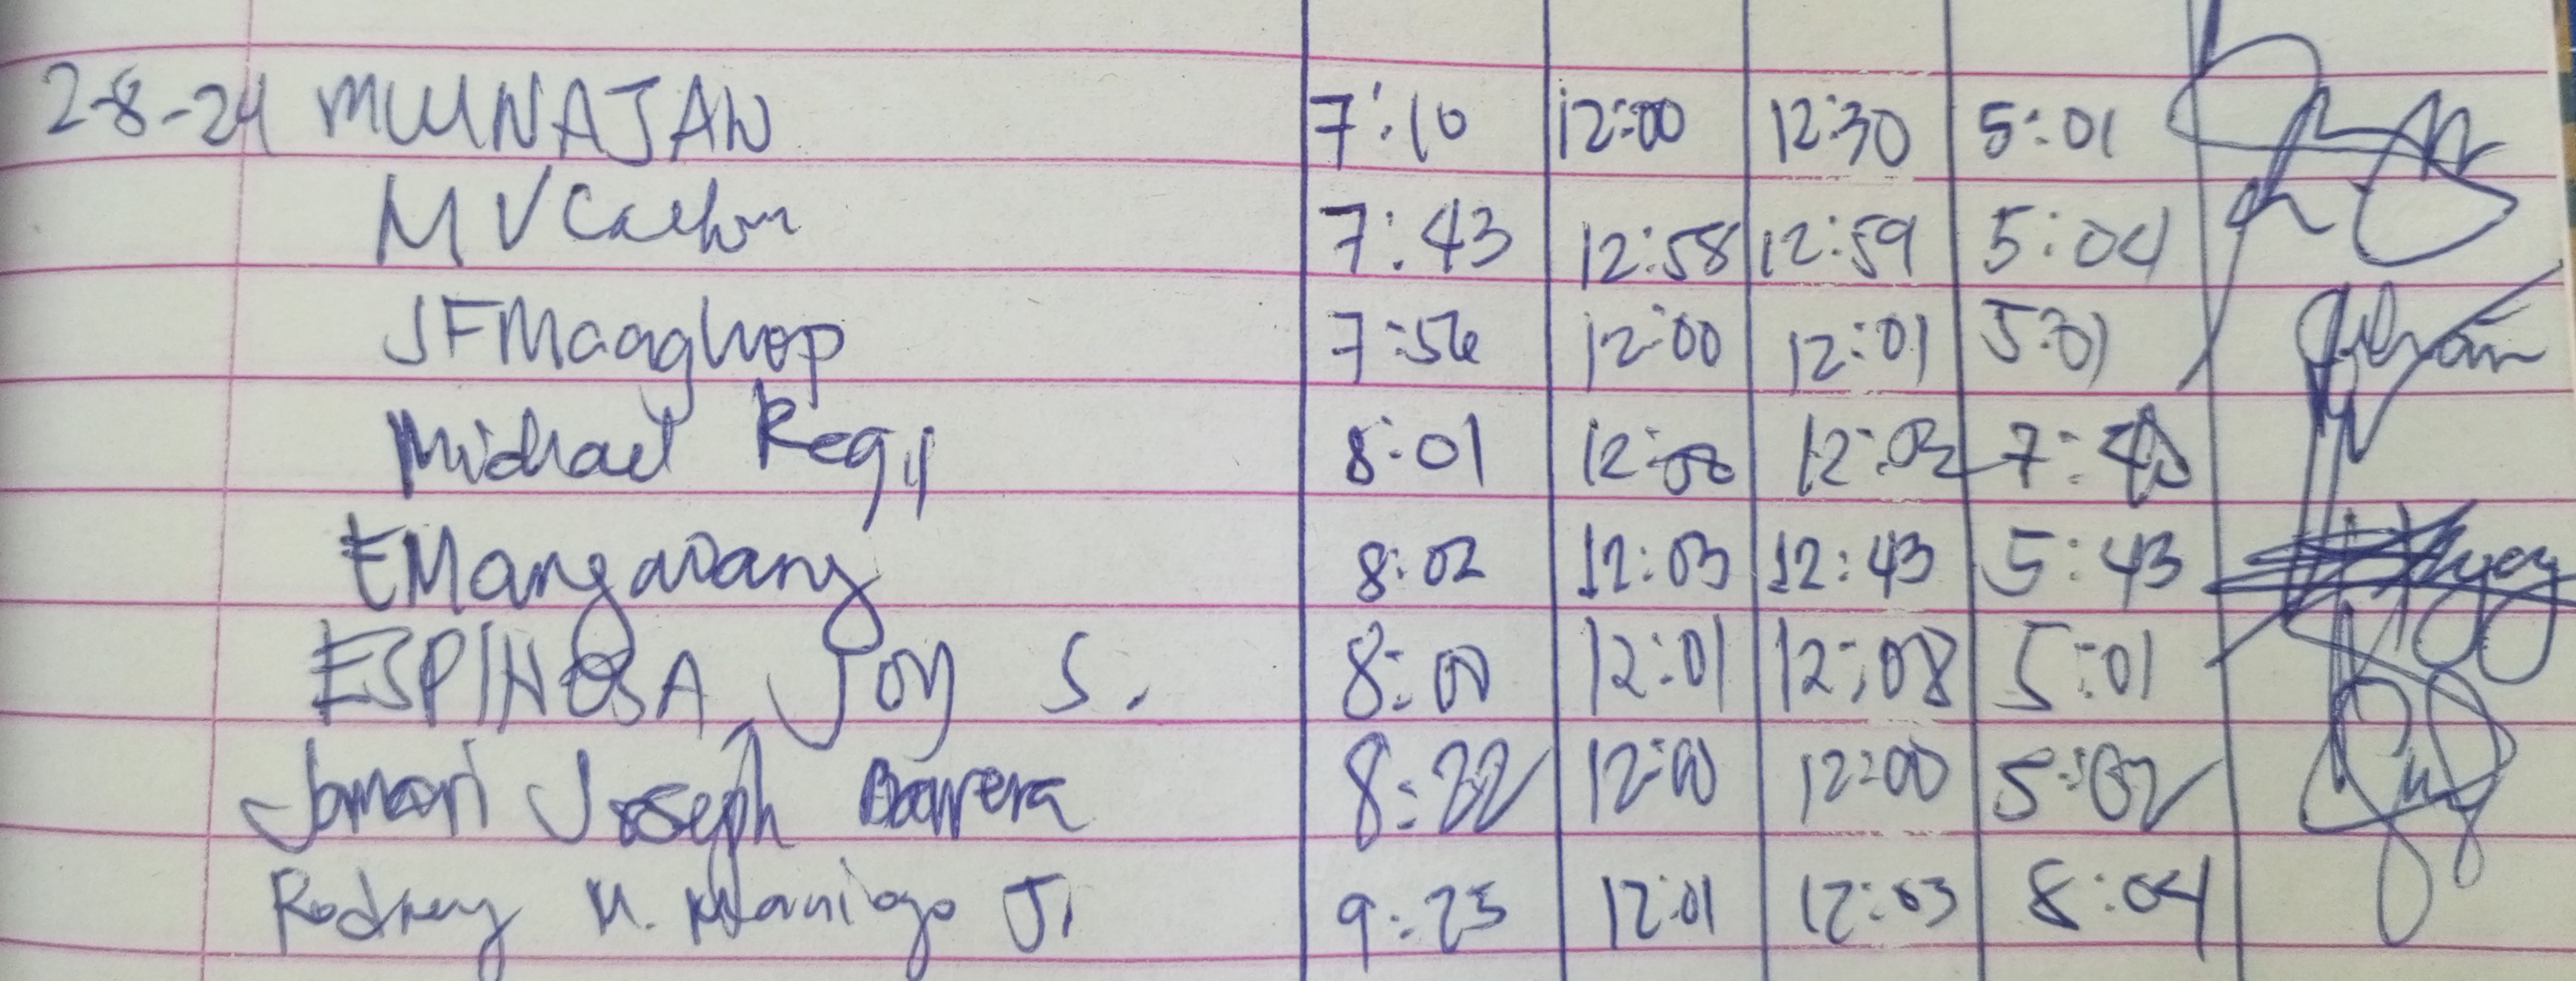 2-8-24 MWNAJAN 7:10 12:00 12:30 5:01
M V 7:43 12:58 12:59 5:04
JFMaaghop 7:56 12:00 12:01 5:01
Michael 8:01 12:00 12:02 7:
EMangawang 8:02 12:03 12:43 5:43
ESPINOSA, Joy S. 8:00 12:01 12:08 5:01
Jomari Joseph Barrera 8:22 12:00 12:00 5:02
Rodney M. Maniago Jr 9:25 12:01 12:03 8:04